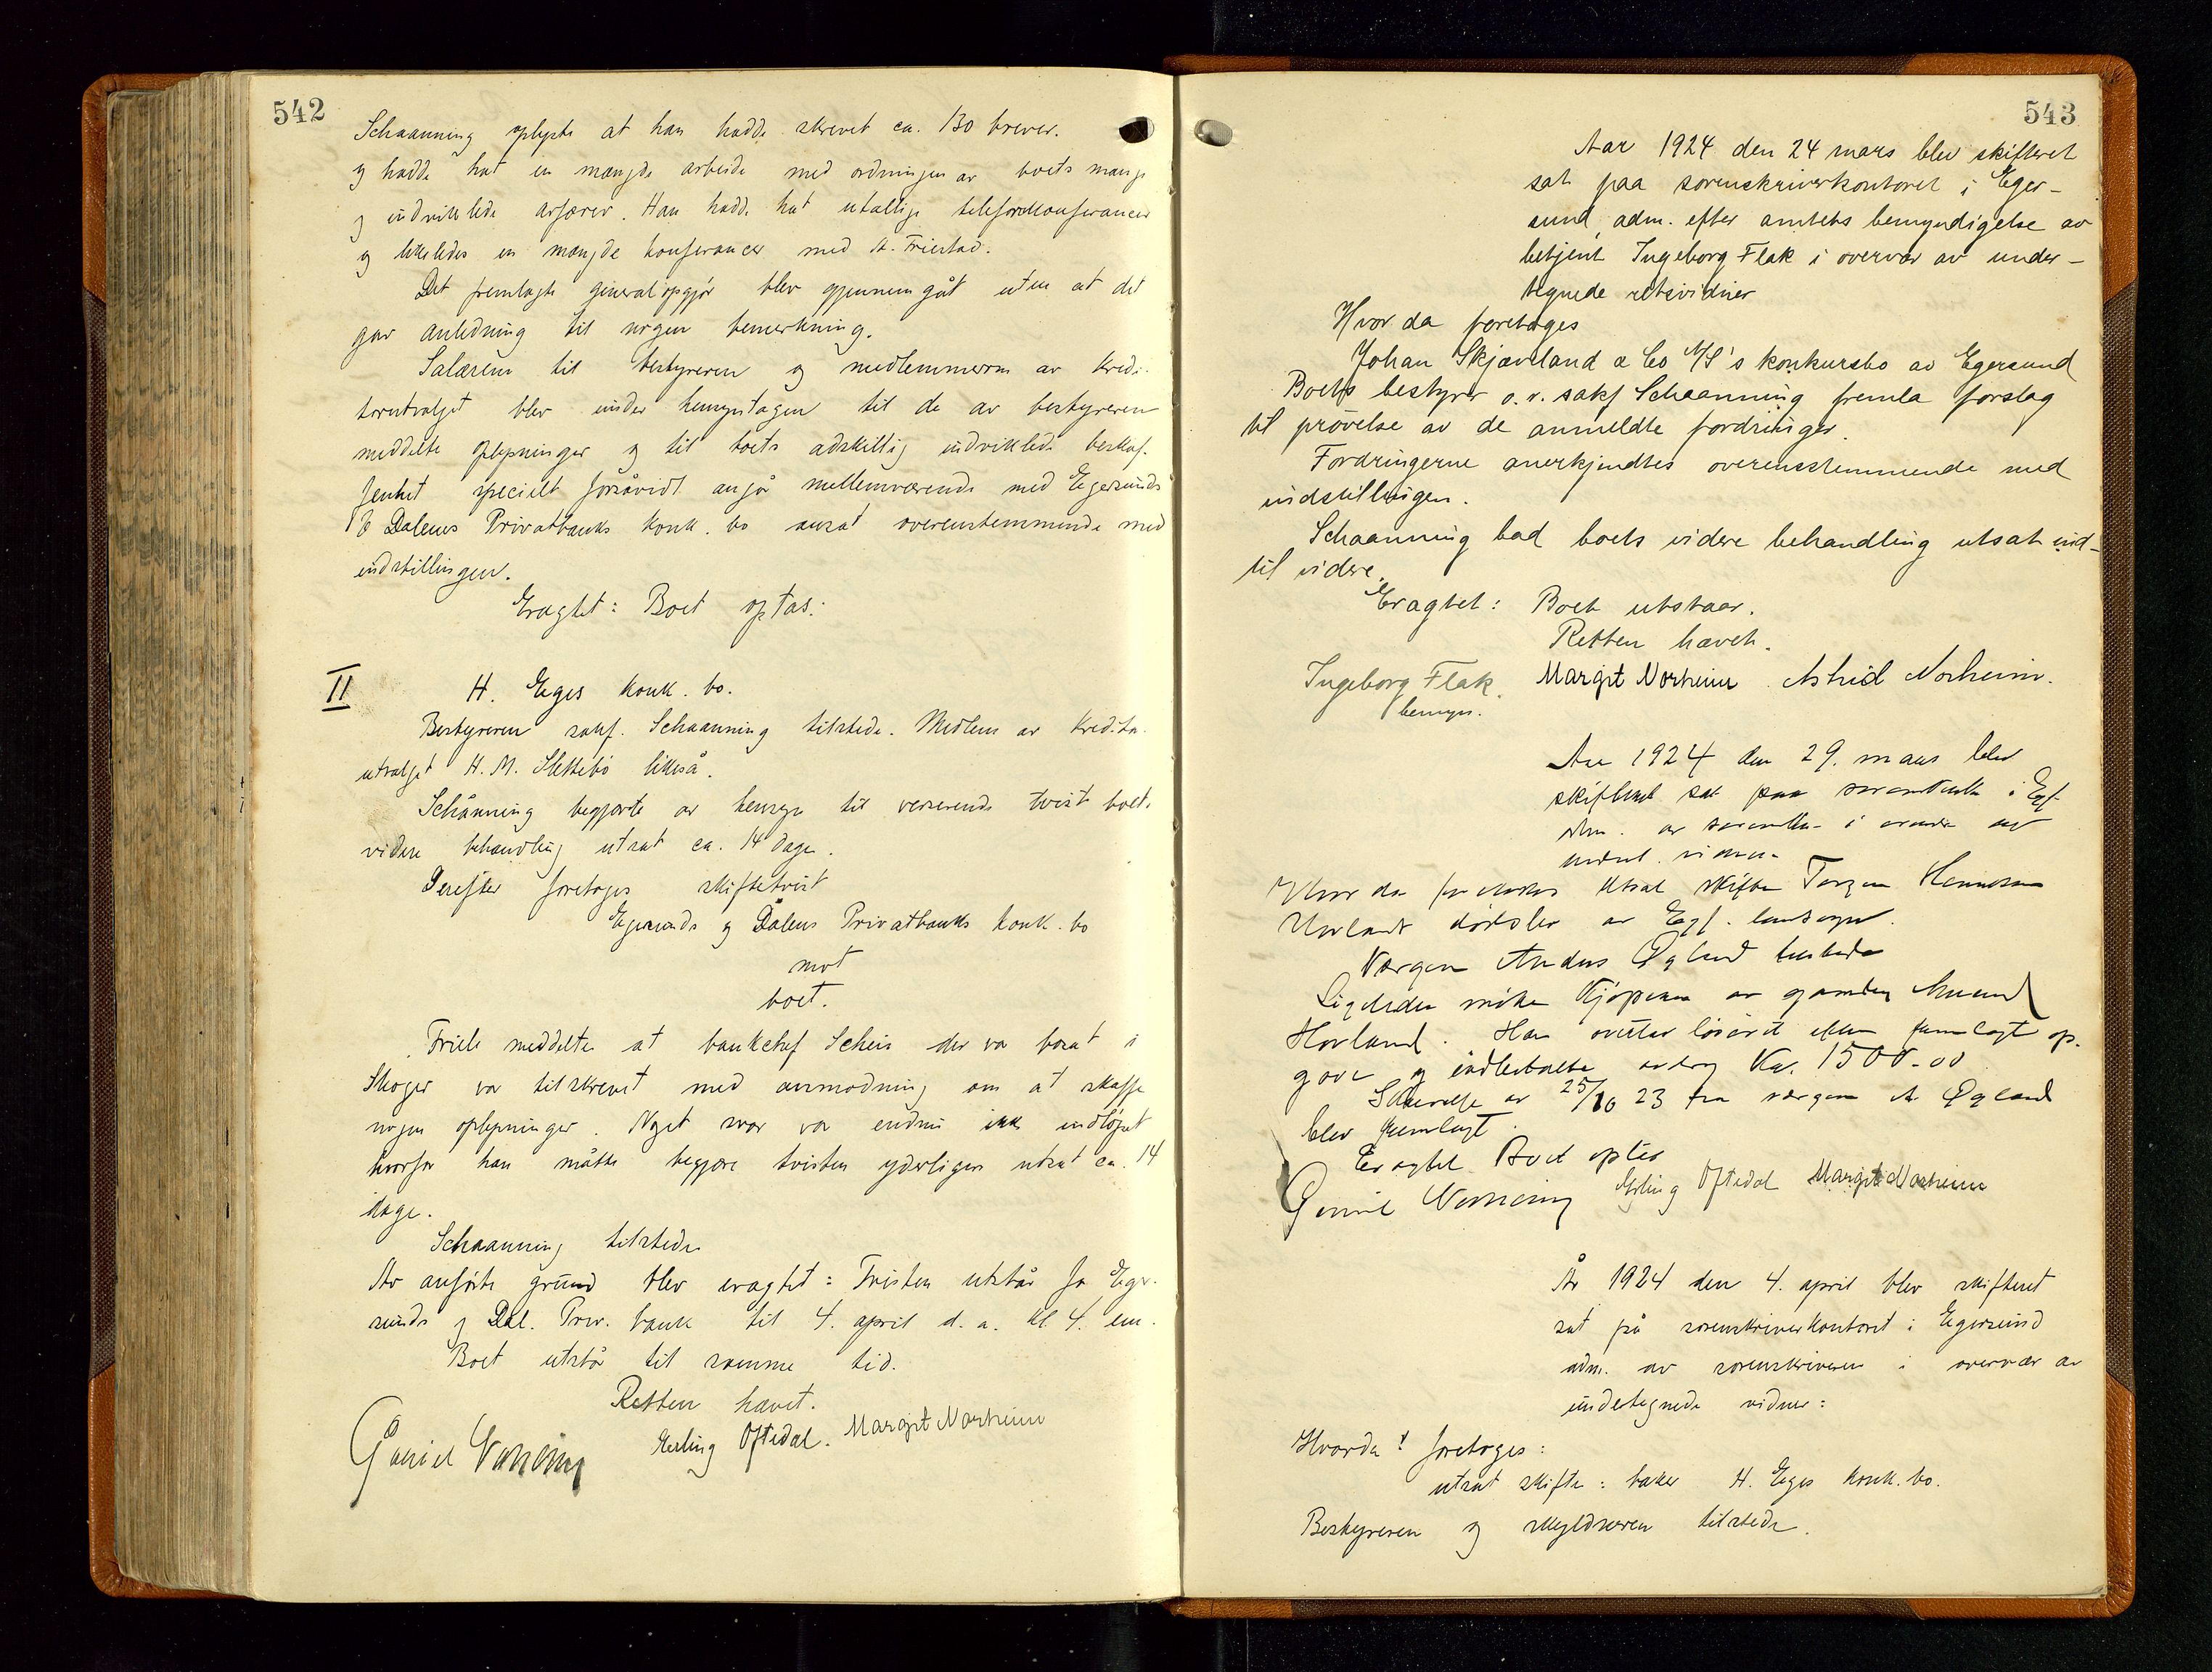 542
Schaanning oplyste at han hadde skrevet ca. 130 brever.
og hadde hat en mængde arbeide med ordningen av boets mange
og indviklede affærer. Han hadde hat utallige telefonkonferancer
og likeledes en mængde konferancer med A. Friestad.
Det fremlagte generalopgjör blev gjennemgåt uten at det
gav anledning til nogen bemerkning.
Salæren til bestyreren og medlemmerne av kredi-
torutvalget blev under hensyntagen til de av bestyreren
meddelte oplysninger og til boets adskillig indviklede beskaf-
fenhet specielt forsåvidt angår mellemværende med Egersunds
& Dalenes Privatbanks konk. bo ansat overenstemmende med
indstillingen.
Eragtet: Boet optas.
II
H. Eges konk. bo.
Bestyreren sakf. Schaanning tilstede. Medlem av kredito.
utvalget H. M. Slettebö likeså.
Schånning begjærte av hensyn til verserende tvist boets
videre behandling utsat ca. 14 dage.
Derefter foretages skiftetvist
Egersunds og Dalens Privatbanks konk. bo
mot
boet.
Friele meddelte at bankchef Scheie der var bosat i
Skoger var tilskrevet med anmodning om at skaffe
nogen oplysninger. Noget svar var endnu ikke indlöpet
hvorfor han måtte begjære tvisten yderligere utsat ca. 14
dage.
Schaanning tilstede.
Av anförte grund blev eragtet: Tvisten utstår for Eger-
sunds og Dal. Priv. bank til 4. april d. a. kl. 4. em.
Boet utstår til samme tid.
Retten hævet.
Erling Oftedal. Margit Norheim
543
Aar 1924 den 24 mars blev skifteret
sat paa sorenskriverkontoret i Eger-
sund, adm. efter amtets bemyndigelse av
betjent Ingeborg Flak i overvær av under-
tegnede retsvidner
Hvor da foretages
Johan Skjæveland & Co A/S's konkursbo av Egersund
Boets bestyrer o.r. sakf Schaanning fremla forslag
til prövelse av de anmeldte fordringer.
Fordringerne anerkjendtes overensstemmende med
indstillingen.
Schaanning bad boets videre behandling utsat ind-
til videre.
Eragtet: Boet utstaar.
Retten hævet.
Ingeborg Flak. Margit Norheim Astrid Norheim.
bemyn.
Aar 1924 den 29. mars blev
skifteret sat paa i Eg.
adm. av i
vidner
Hvor da utsat skifte
dödsbo av Eg. landsogn.
Værgen Andus Øgland tilstede
Ligeledes möter kjöperen av gaarden
Hovland. Han löseret efter fremlagt op-
gave og Kr. 1500.00
Skrivelse av 25/10 23 fra værgen A Øgland
blev fremlagt.
Eragtet Boet optas
Erling Oftedal Margit Norheim
År 1924 den 4. april blev skifteret
sat på sorenskriverkontoret i Egersund
adm. av sorenskriveren i overvær av
undetegnede vidner:
Hvorda foretages:
utsat skifte: baker H. Eges konk. bo.
Bestyreren og skyldneren tilstede.